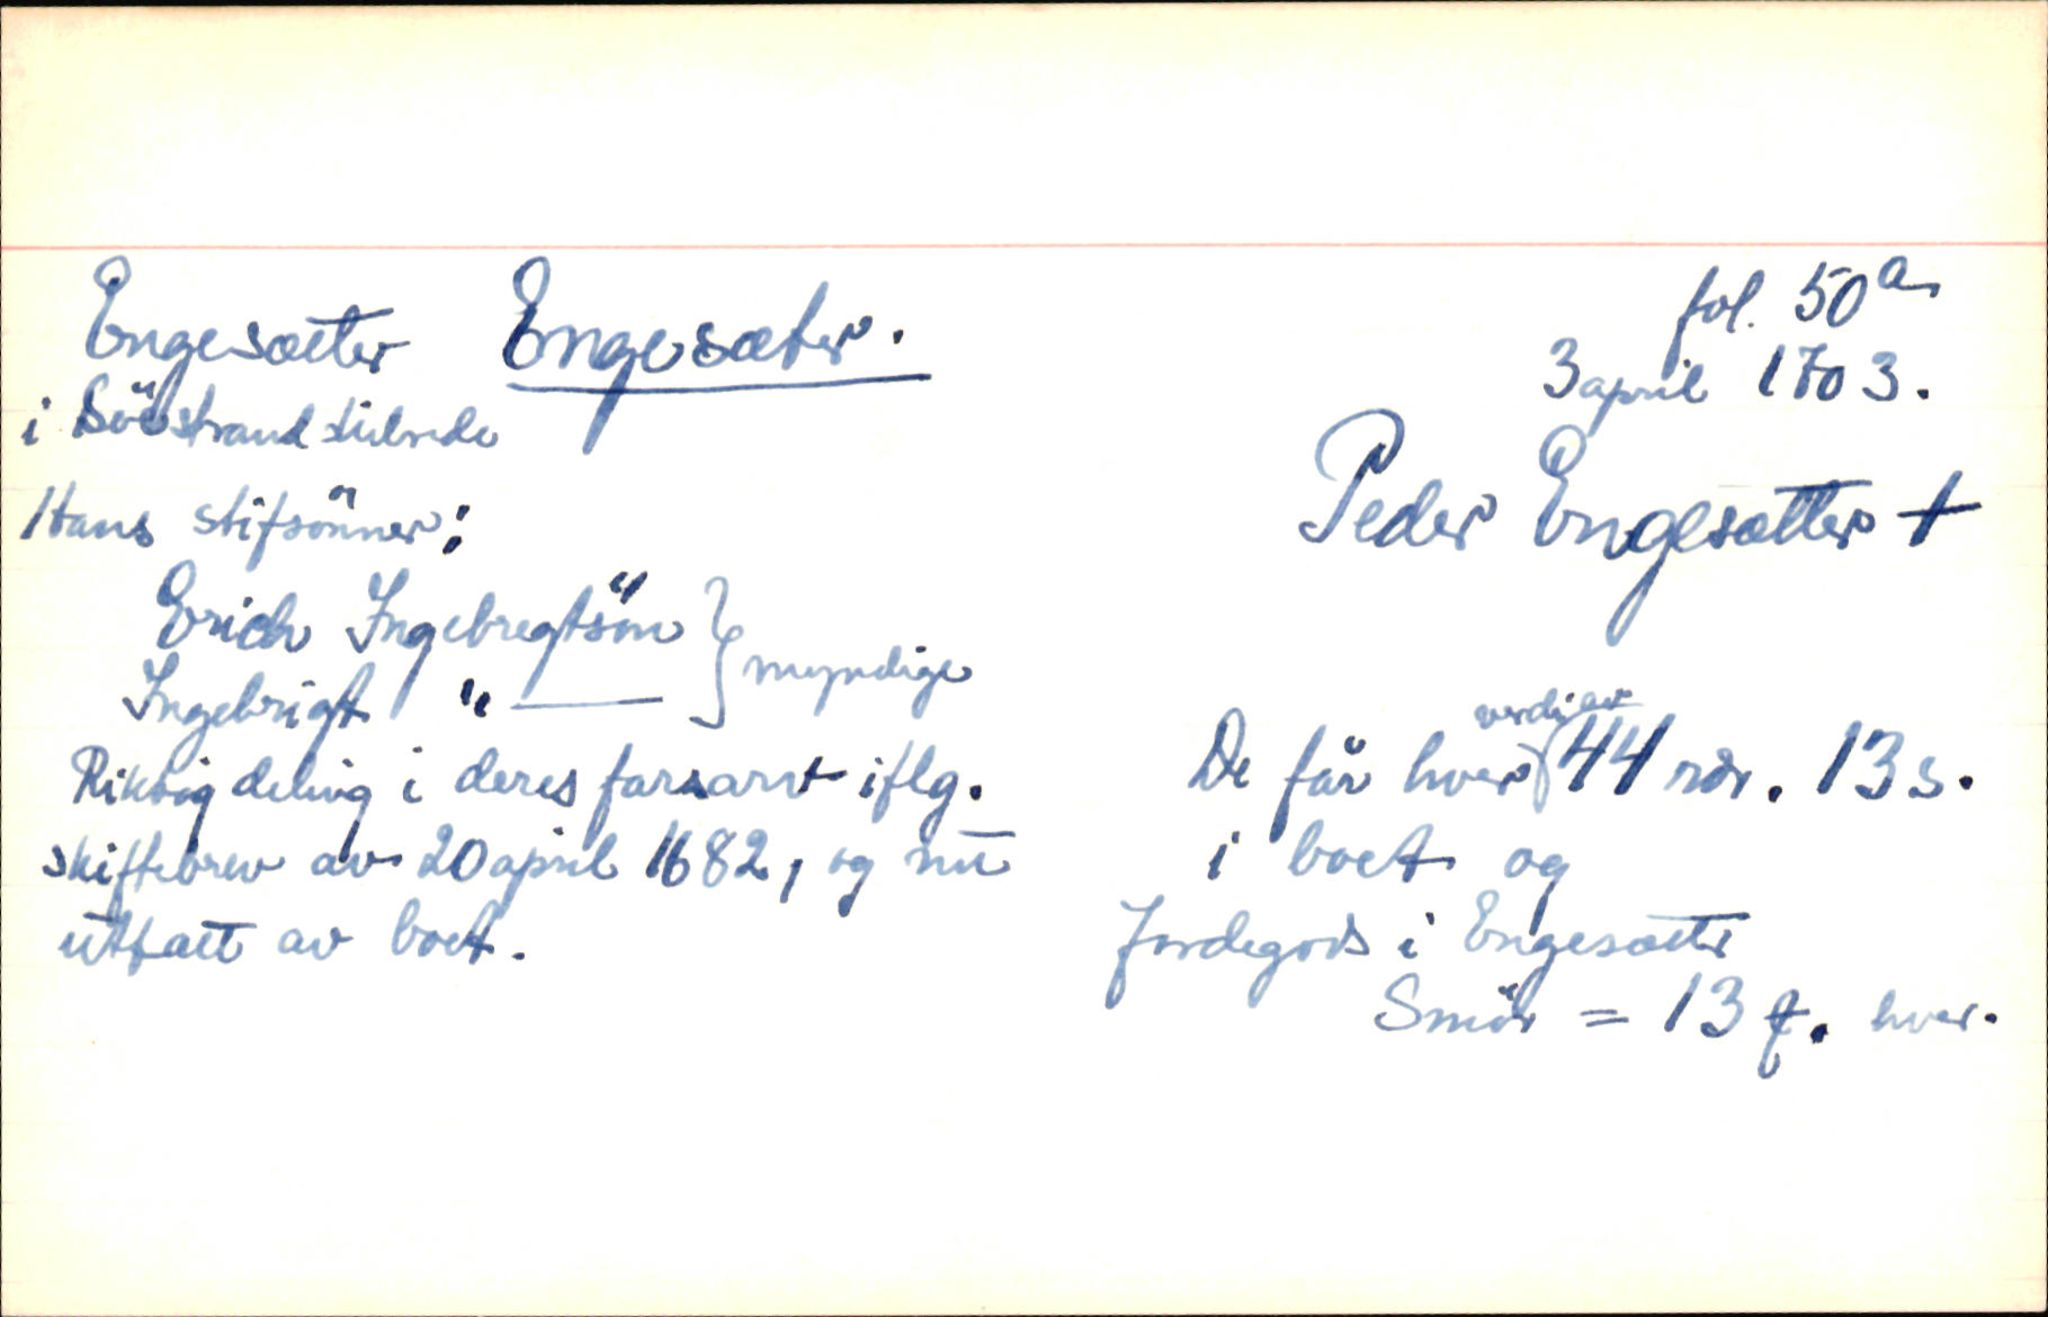 Engesætter Engesæter.
fol. 50a
i Söestrand tilrede
3 april 1703.
Peder Engesætter +
Hans stifsönner:
Erich Ingebregtsön } myndige
Ingebrigt " —
Riktig deling i deres farsarv iflg.
skiftebrev av 20 april 1682, og nu
utfatt av boet.
De får hver verdi av 44 rdr. 13 s.
i boet og
Jordegods i Engesætter
Smör = 13 f. hver.